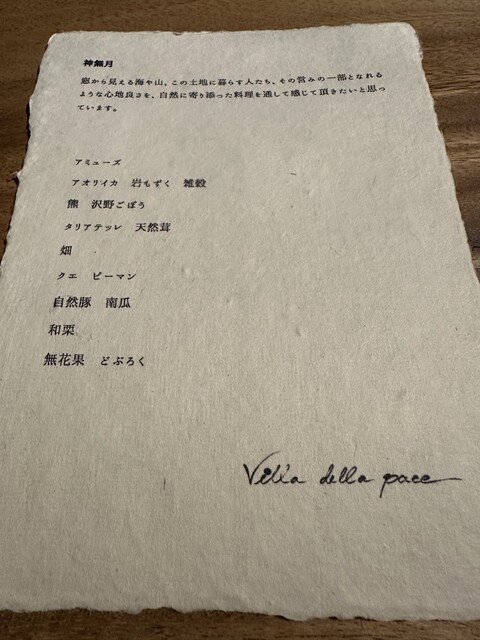 神無月
窓から見える海や山、この土地に暮らす人たち、その営みの一部となれる
ような心地良さを、自然に寄り添った料理を通して感じて頂きたいと思っ
ています。
アミューズ
アオリイカ 岩もずく 雑穀
熊 沢野ごぼう
タリアテッレ 天然茸
畑
クエ ピーマン
自然豚 南瓜
和栗
無花果 どぶろく
Villa della pace